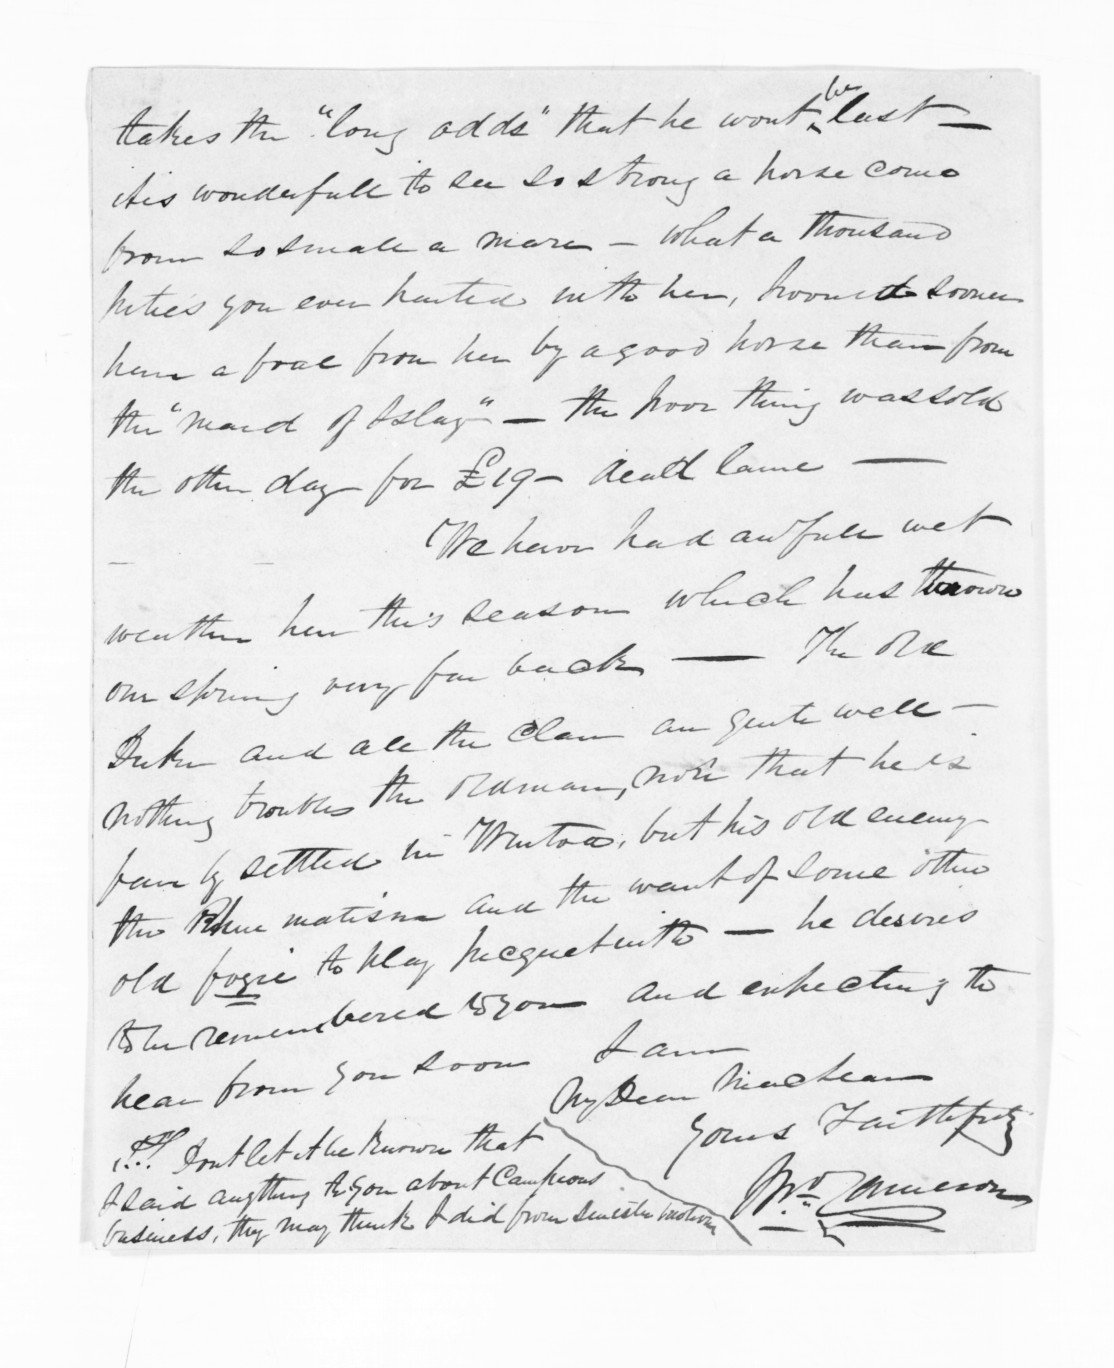 takes the "long odds" that he wont be last —
it is wonderfull to see so strong a horse come
from so small a mare — what a thousand
pities you ever parted with her, I would sooner
have a foal from her by a good horse than from
the "Maid of Islay" — the poor thing was sold
the other day for £19 – dead lame —
We have had awfull wet
weather here this season which has thrown
our spring very far back — The old
and all the Clan are quite well —
nothing troubles the old man, now that he is
fairly settled in but his old enemy
the Rhumatism and the want of some other
old fogie to play picquet with — he desires
to be remembered to you and expecting to
hear from you soon I am
My Dear Maclean
Yours Faithfully
Wm Cameron
P.S. Dont let it be known that
I said anything to you about Campions
business, they may think I did from sinister motives